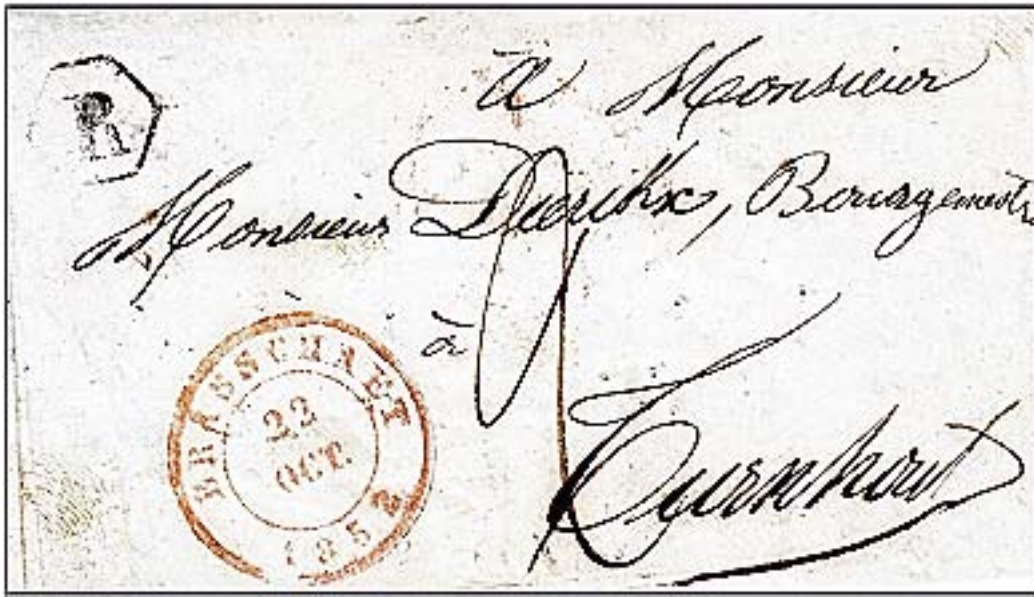 R
à Monsieur
Monsieur Dierikx,
à
Turnhout
BRASSCHAET
22
OCT.
1852